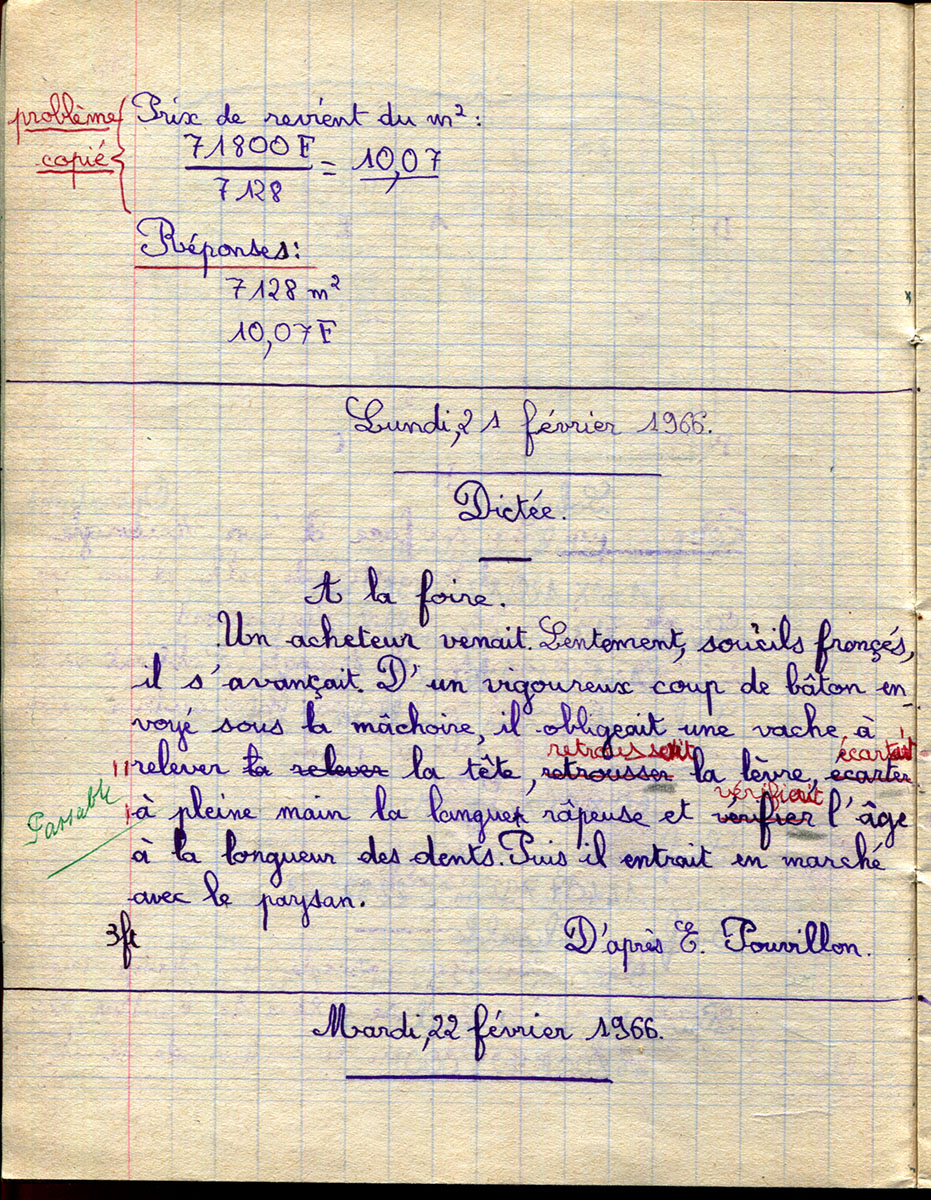 problème
copié
Prix de revient du m²:
71800 F
7128
= 10,07
Réponses:
7128 m²
10,07 F
Lundi, 21 février 1966.
Dictée.
A la foire.
Un acheteur venait. Lentement, soucils fronçés,
il s'avançait. D'un vigoureux coup de bâton en
voyé sous la mâchoire, il obligeait une vache à
retroussait écartait
relever la relever la tête, retrousser la lèvre, écarter
vérifiait
Passable
à pleine main la langue râpeuse et vérifier l'âge
à la longueur des dents. Puis il entrait en marché
avec le paysan.
3ft
D'après E. Pouvillon.
Mardi, 22 février 1966.